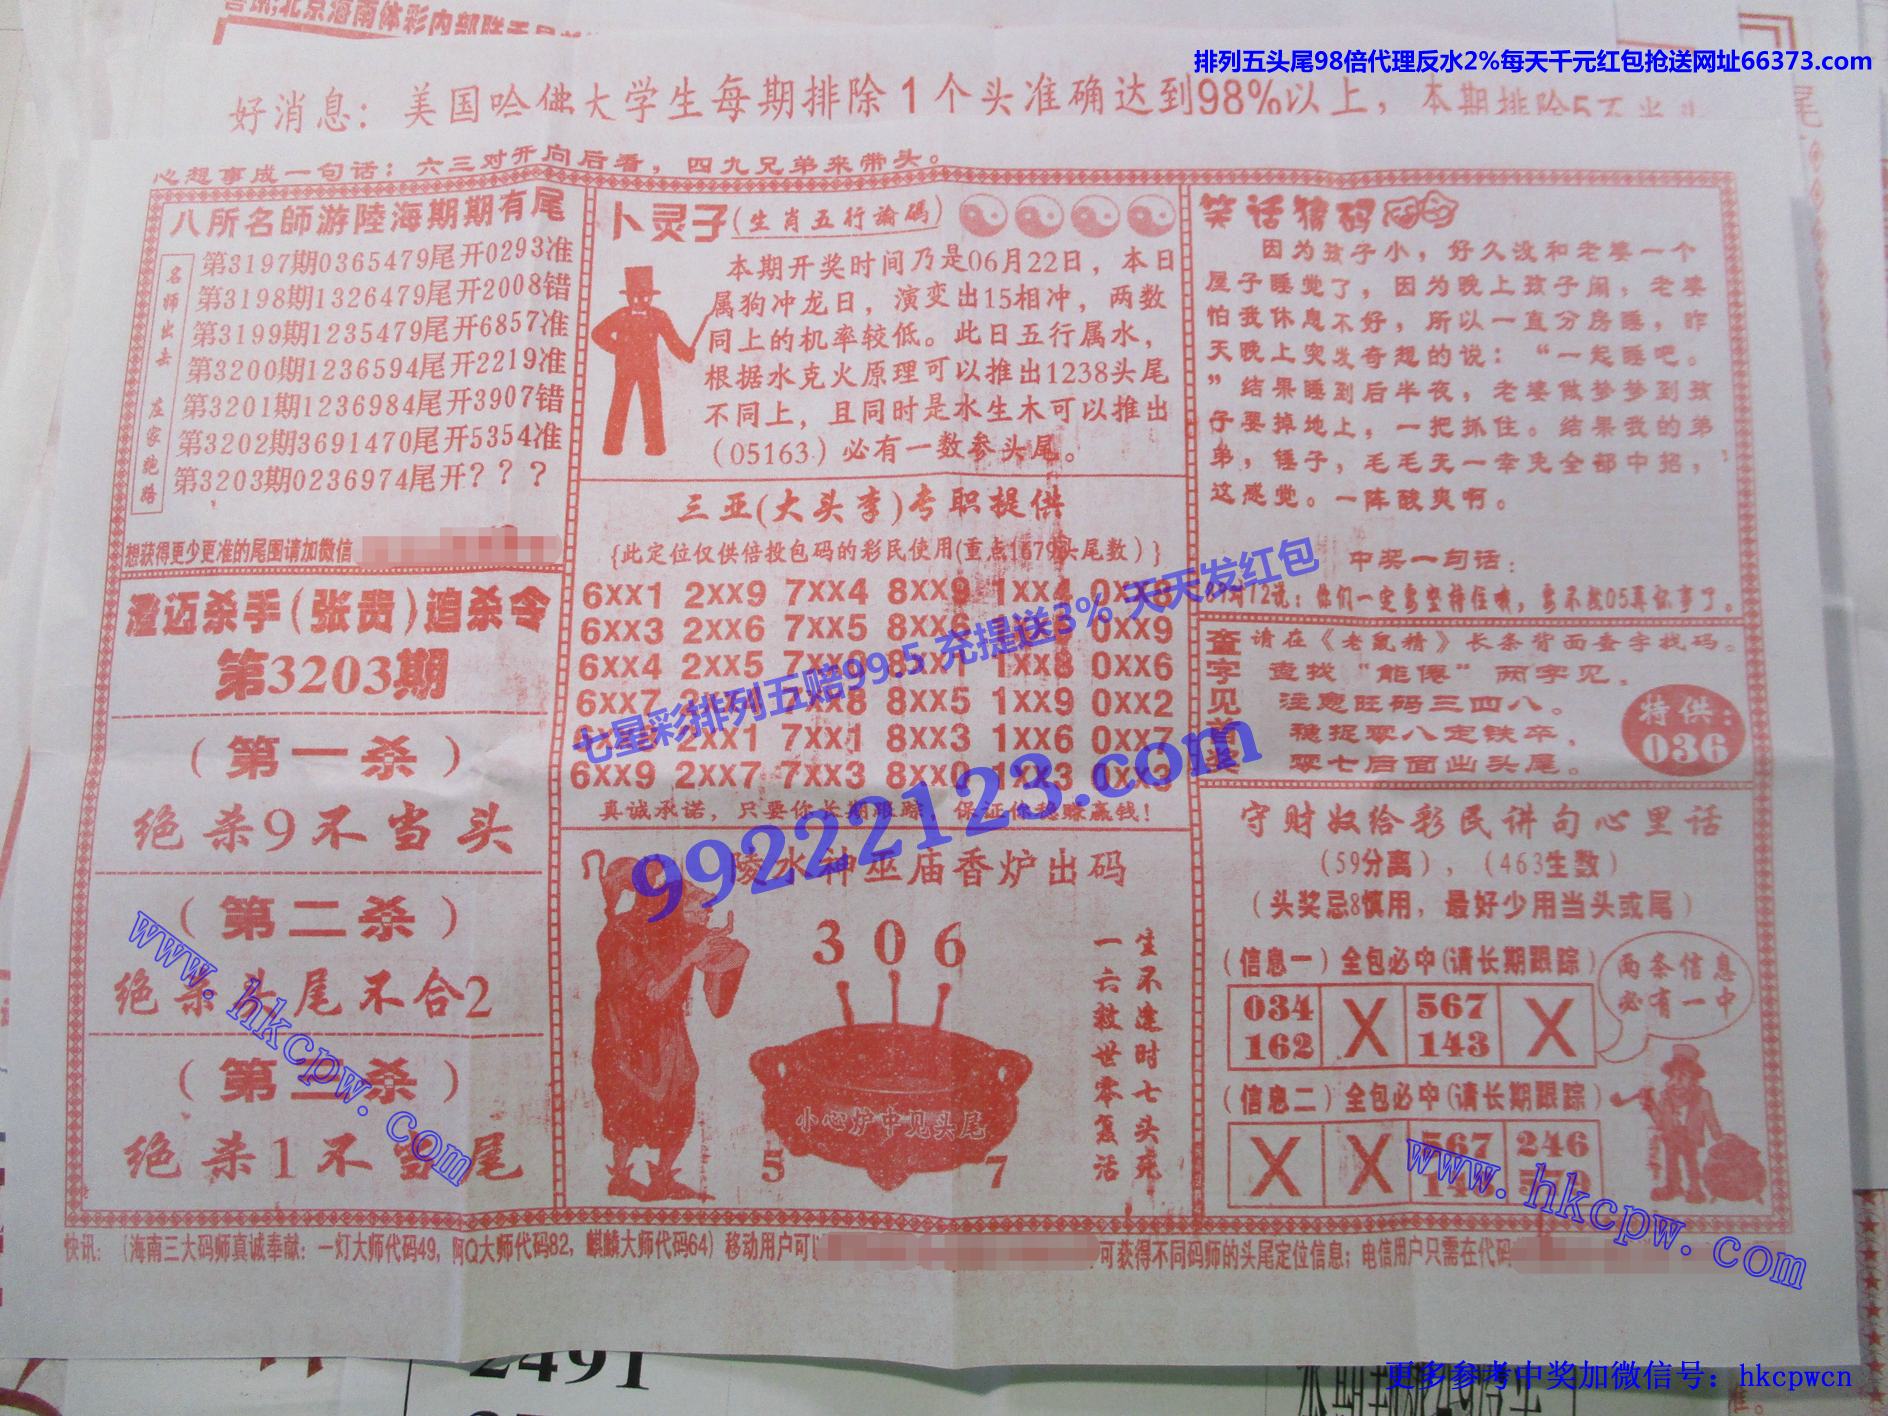 排列五头尾98倍代理反水2%每天千元红包抢送网址66373.com
好消息：美国哈佛大学生每期排除1个头准确达到98%以上，本期排除5不当头
心想事成一句话：六三对开向后看，四九兄弟来带头。
八所名師游陸海期期有尾
名师出去 左家绝路
第3197期0365479尾开0293准
第3198期1326479尾开2008错
第3199期1235479尾开6857准
第3200期1236594尾开2219准
第3201期1236984尾开3907错
第3202期3691470尾开5354准
第3203期0236974尾开？？？
想获得更少更准的尾围请加微信
澄迈杀手(张贵)追杀令
第3203期
(第一杀)
绝杀9不当头
(第二杀)
绝杀头尾不合2
(第三杀)
绝杀1不当尾
卜灵子(生肖五行論碼)
本期开奖时间乃是06月22日，本日
属狗冲龙日，演变出15相冲，两数
同上的机率较低。此日五行属水，
根据水克火原理可以推出1238头尾
不同上，且同时是水生木可以推出
(05163)必有一数参头尾。
三亚(大头李)专职提供
{此定位仅供倍投包码的彩民使用(重点1679头尾数)}
6XX1 2XX9 7XX4 8XX9 1XX4 0XX8
6XX3 2XX6 7XX5 8XX6 1XX5 0XX9
6XX4 2XX5 8XX1 1XX8 0XX6
6XX7 2XX4 7XX8 8XX5 1XX9 0XX2
2XX1 7XX1 8XX3 1XX6 0XX7
6XX9 2XX7 7XX3 8XX0 1XX3 0XX3
真诚承诺，只要你长期跟踪，保证你稳赚赢钱！
陵水神巫庙香炉出码
306
生不逢时七头死
一六救世零复活
小心炉中见头尾
5 7
笑话猜码
因为孩子小，好久没和老婆一个
屋子睡觉了，因为晚上孩子闹，老婆
怕我休息不好，所以一直分房睡，昨
天晚上突发奇想的说：“一起睡吧。
”结果睡到后半夜，老婆做梦梦到孩
子要掉地上，一把抓住。结果我的弟
弟，锤子，毛毛无一幸免全部中招，
这感觉。一阵酸爽啊。
中奖一句话：
12说：你们一定要坚持住哦，要不然05真坏事了。
查字见首奖
请在《老鼠精》长条背面查字找码。
查找“能倦”两字见，
注意旺码三四八。
稳捉零八定铁卒，
零七后面出头尾。
特供：
036
守财奴给彩民讲句心里话
(59分离)，(463生数)
(头奖忌8慎用，最好少用当头或尾)
(信息一)全包必中(请长期跟踪)
034 X 567 X
162 143
两条信息
必有一中
(信息二)全包必中(请长期跟踪)
X X 567 246
快讯：(海南三大码师真诚奉献：一灯大师代码49，阿Q大师代码82，麒麟大师代码64)移动用户可以
可获得不同码师的头尾定位信息；电信用户只需在代码
七星彩排列五赔99.5 充提送3% 天天发红包
99222123.com
www.hkcpw.com
www.hkcpw.com
2491
更多参考中奖加微信号：hkcpwcn